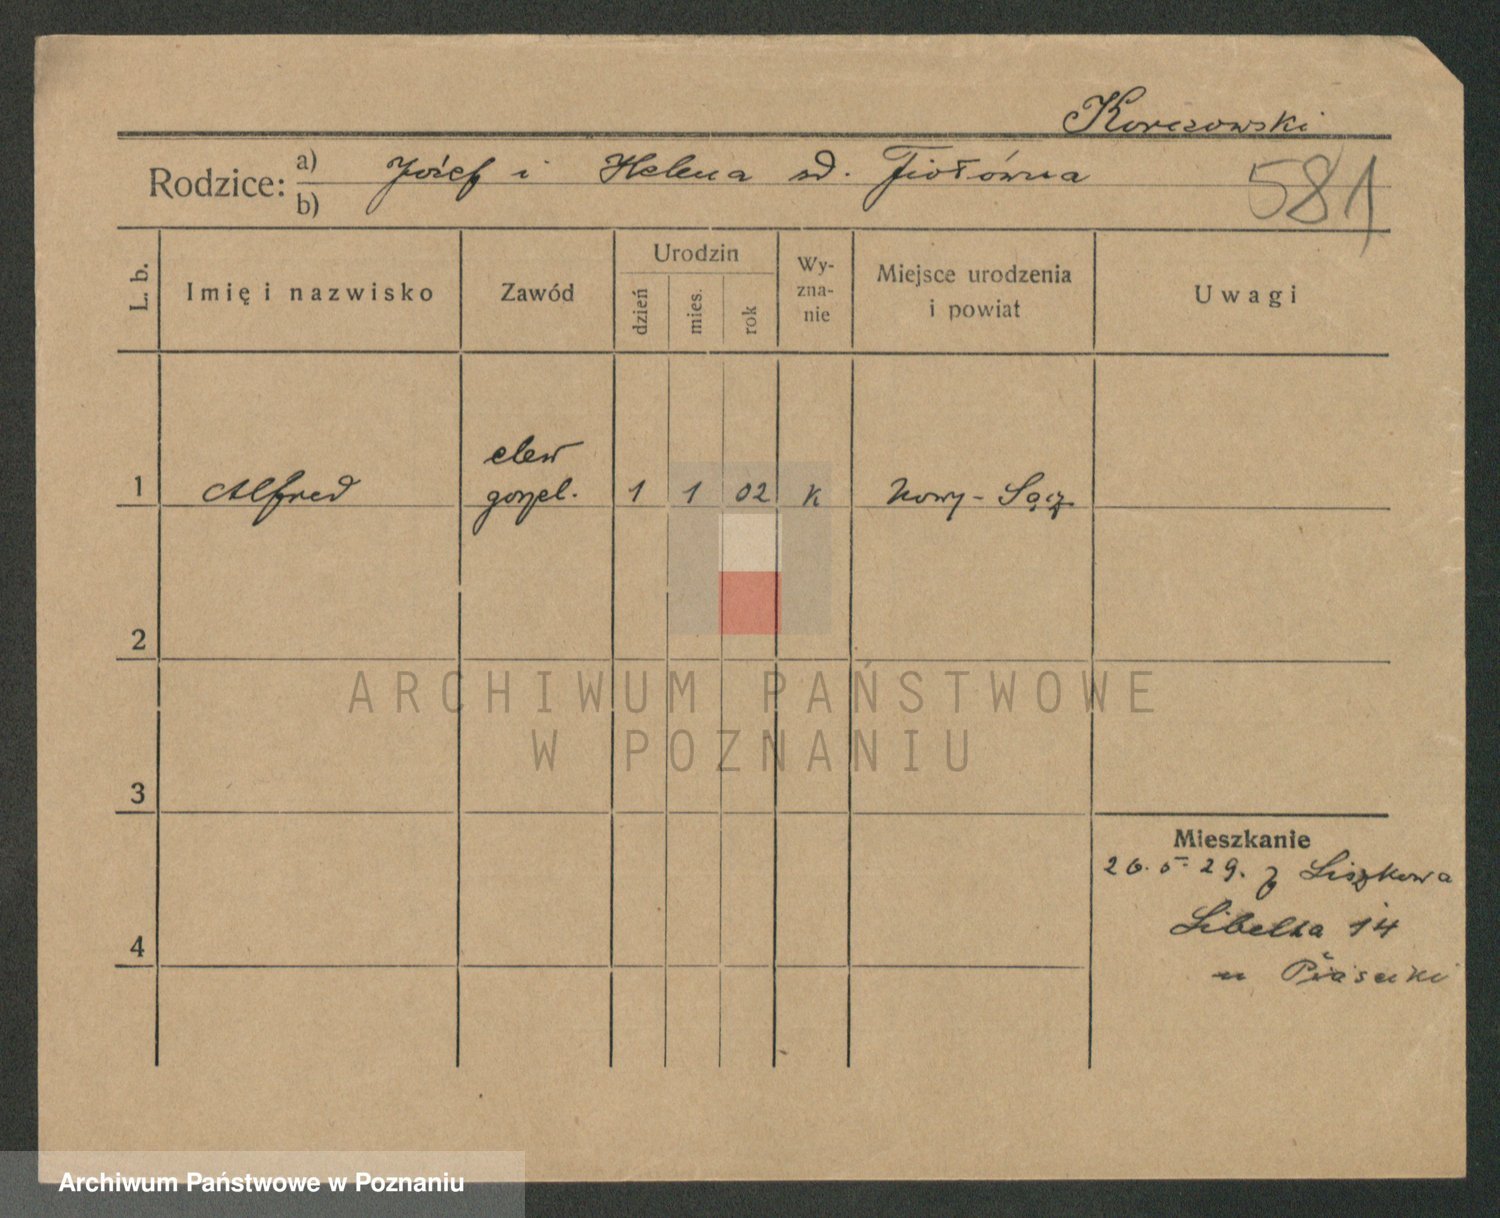 Korczowski
Rodzice: a) Józef i Helena zd. Fiołówna
b)
581
L. b.
Imię i nazwisko
Zawód
Urodzin
dzień
mies.
rok
Wy-
zna-
nie
Miejsce urodzenia
i powiat
Uwagi
elew
1 Alfred gorzel. 1 1 02 k Nowy-Sącz
2
ARCHIWUM PAŃSTWOWE
W POZNANIU
3
Mieszkanie
26.5.29. z Liszkowa
Libelta 14
4
u
Archiwum Państwowe w Poznaniu